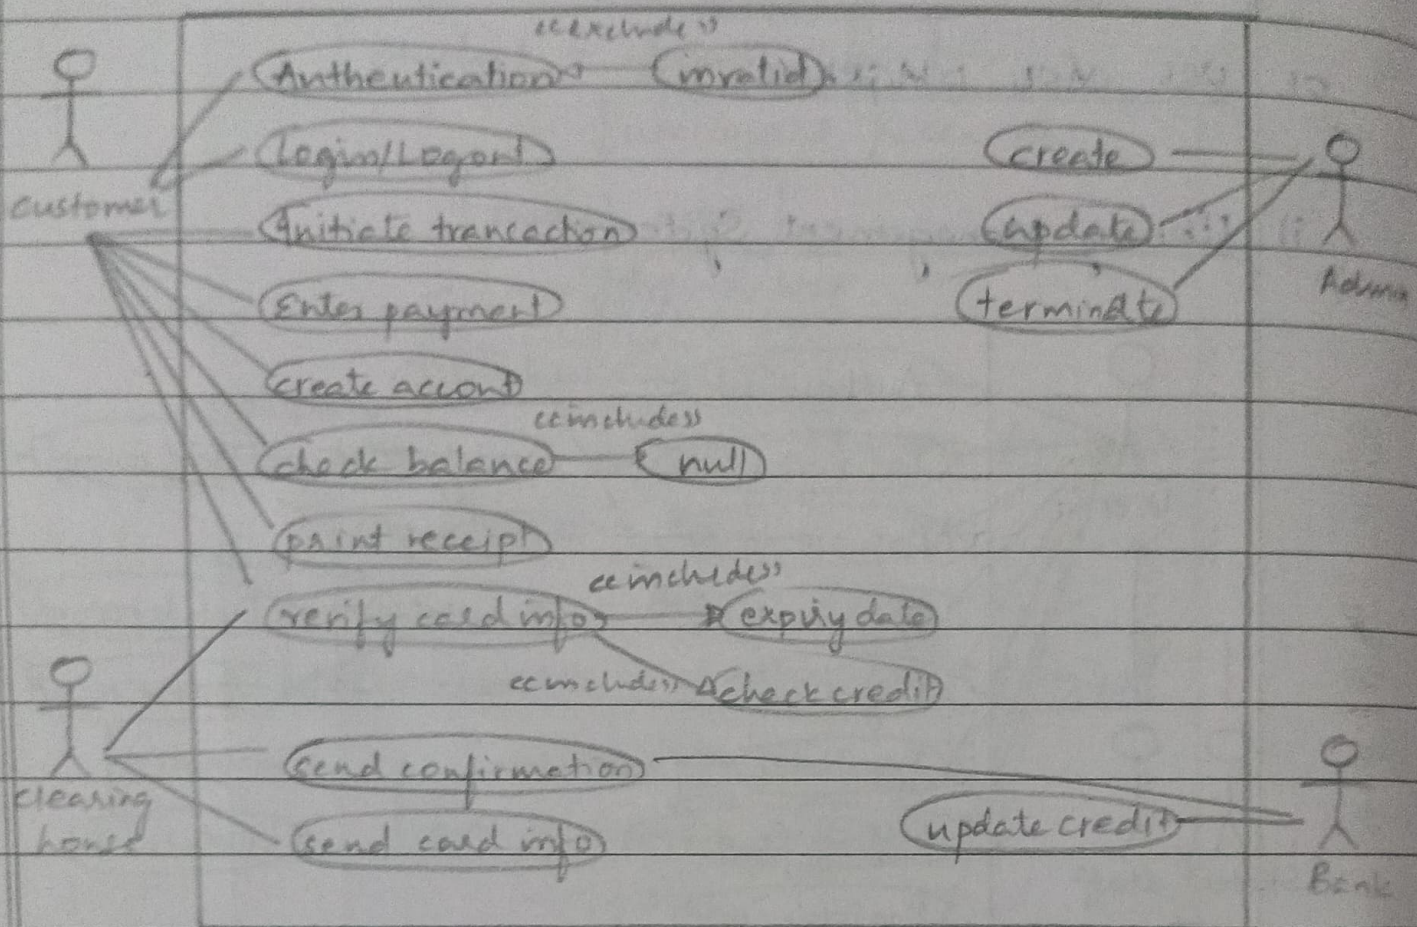 <<exclude>>
Authentication invalid
Login/Logout create
customer
Initiate trancaction update
Admin
Enter payment terminate
create accont
<<includes>>
check balance null
print receipt
<<includes>>
verify card info expiry date
<<includes>> check credit
send confirmation
clearing
house
send card info update credit
Bank